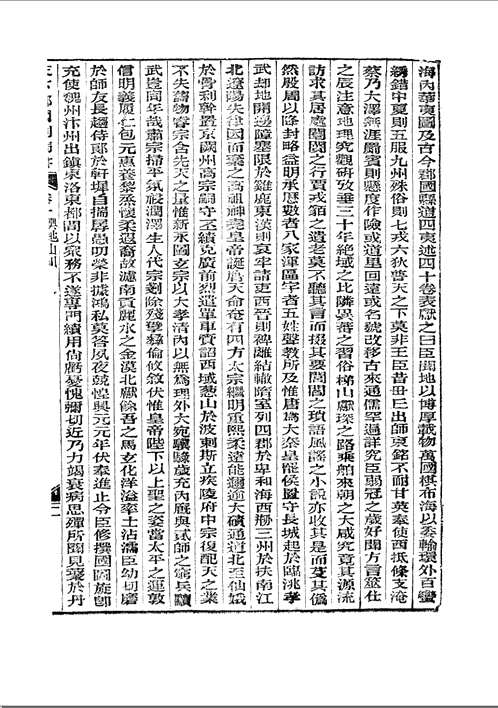 海內華夷圖及古今郡國縣道四夷述四十卷表獻之曰臣聞地以博厚載物萬國棋布海以委輸環外百蠻
繡錯中夏則五服九州殊俗則七戎六狄普天之下莫非王臣昔毌丘出師東銘不耐甘英奉使西抵條支淹
蔡乃大澤無涯罽賓則懸度作險或道里回遠或名號改移古來通儒罕遍詳究臣弱冠之歲好聞方言筮仕
之辰注意地理究觀研攷垂三十年絕域之比隣異蕃之習俗梯山獻琛之路乘舶來朝之人咸究竟其源流
訪求其居處闤闠之行賈戎貊之遺老莫不聽其言而掇其要閭閻之瑣語風謠之小說亦收其是而芟其僞
然殷周以降封略益明承歷數者八家渾區宇者五姓聲敎所及惟唐爲大秦皇罷侯置守長城起於臨洮孝
武却地開邊障塞限於雞鹿東漢則哀牢請吏西晉則裨離結轍隋室列四郡於卑和海西剏三州於扶南江
北遼陽失律因而棄之高祖神堯皇帝誕膺天命奄有四方太宗繼明重熙柔遠能邇逾大磧通道北至仙娥
於骨利幹置京闕州高宗嗣守丕績克廣前烈遣單車賫詔西域葱山於波剌斯立疾陵府中宗復配天之業
不失舊物睿宗含先天之量惟新永圖玄宗以大孝清內以無爲理外大宛驥騄歲充內廐與貳師之窮兵黷
武豈同年哉肅宗掃平氛祲潤澤生人代宗剗除殘孽彝倫攸敘伏惟皇帝陛下以上聖之姿當太平之運敦
信明義履仁包元惠養黎蒸懷柔遐裔故瀘南貢麗水之金漠北獻余吾之馬玄化洋溢率土沾濡臣幼切磨
於師友長趨侍於軒墀自揣孱愚叨榮非據鴻私莫答夙夜兢惶興元元年伏奉進止令臣修撰國圖旋卽
充使魏州汴州出鎮東洛東都間以衆務不遂專門績用尙虧憂愧彌切近乃力竭衰病思殫所聞見叢於丹